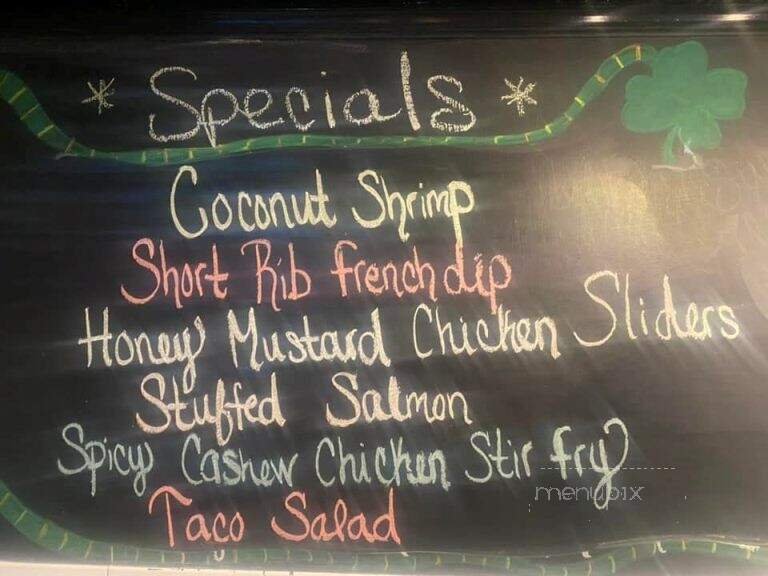 * Specials *
Coconut Shrimp
Short Rib frenchdip
Honey Mustard Chicken Sliders
Stuffed Salmon
Spicy Cashew Chicken Stir fry
menupix
Taco Salad